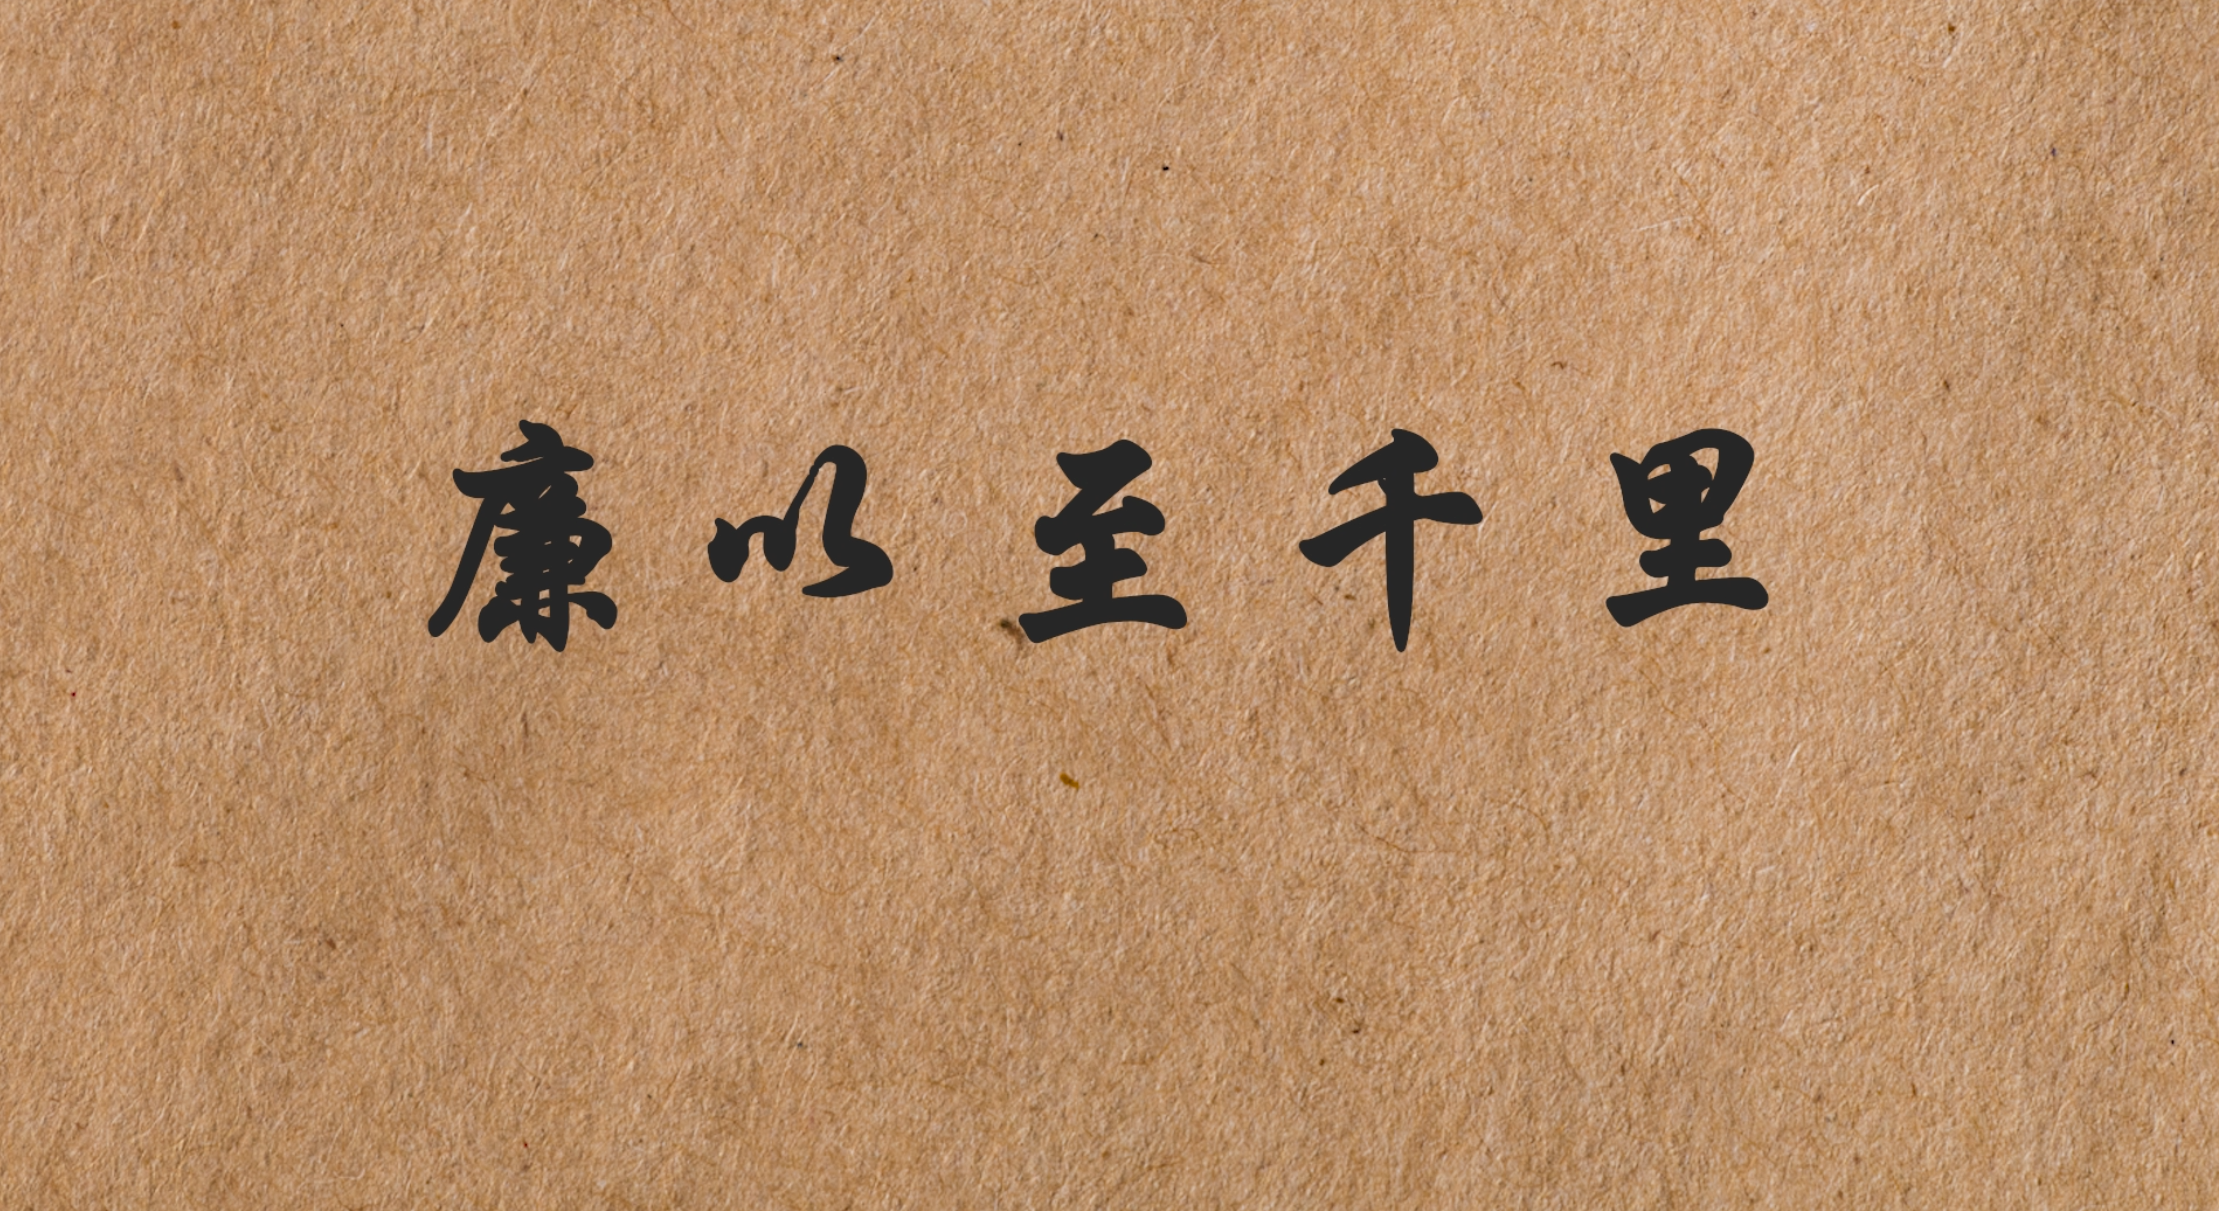 廉以至千里